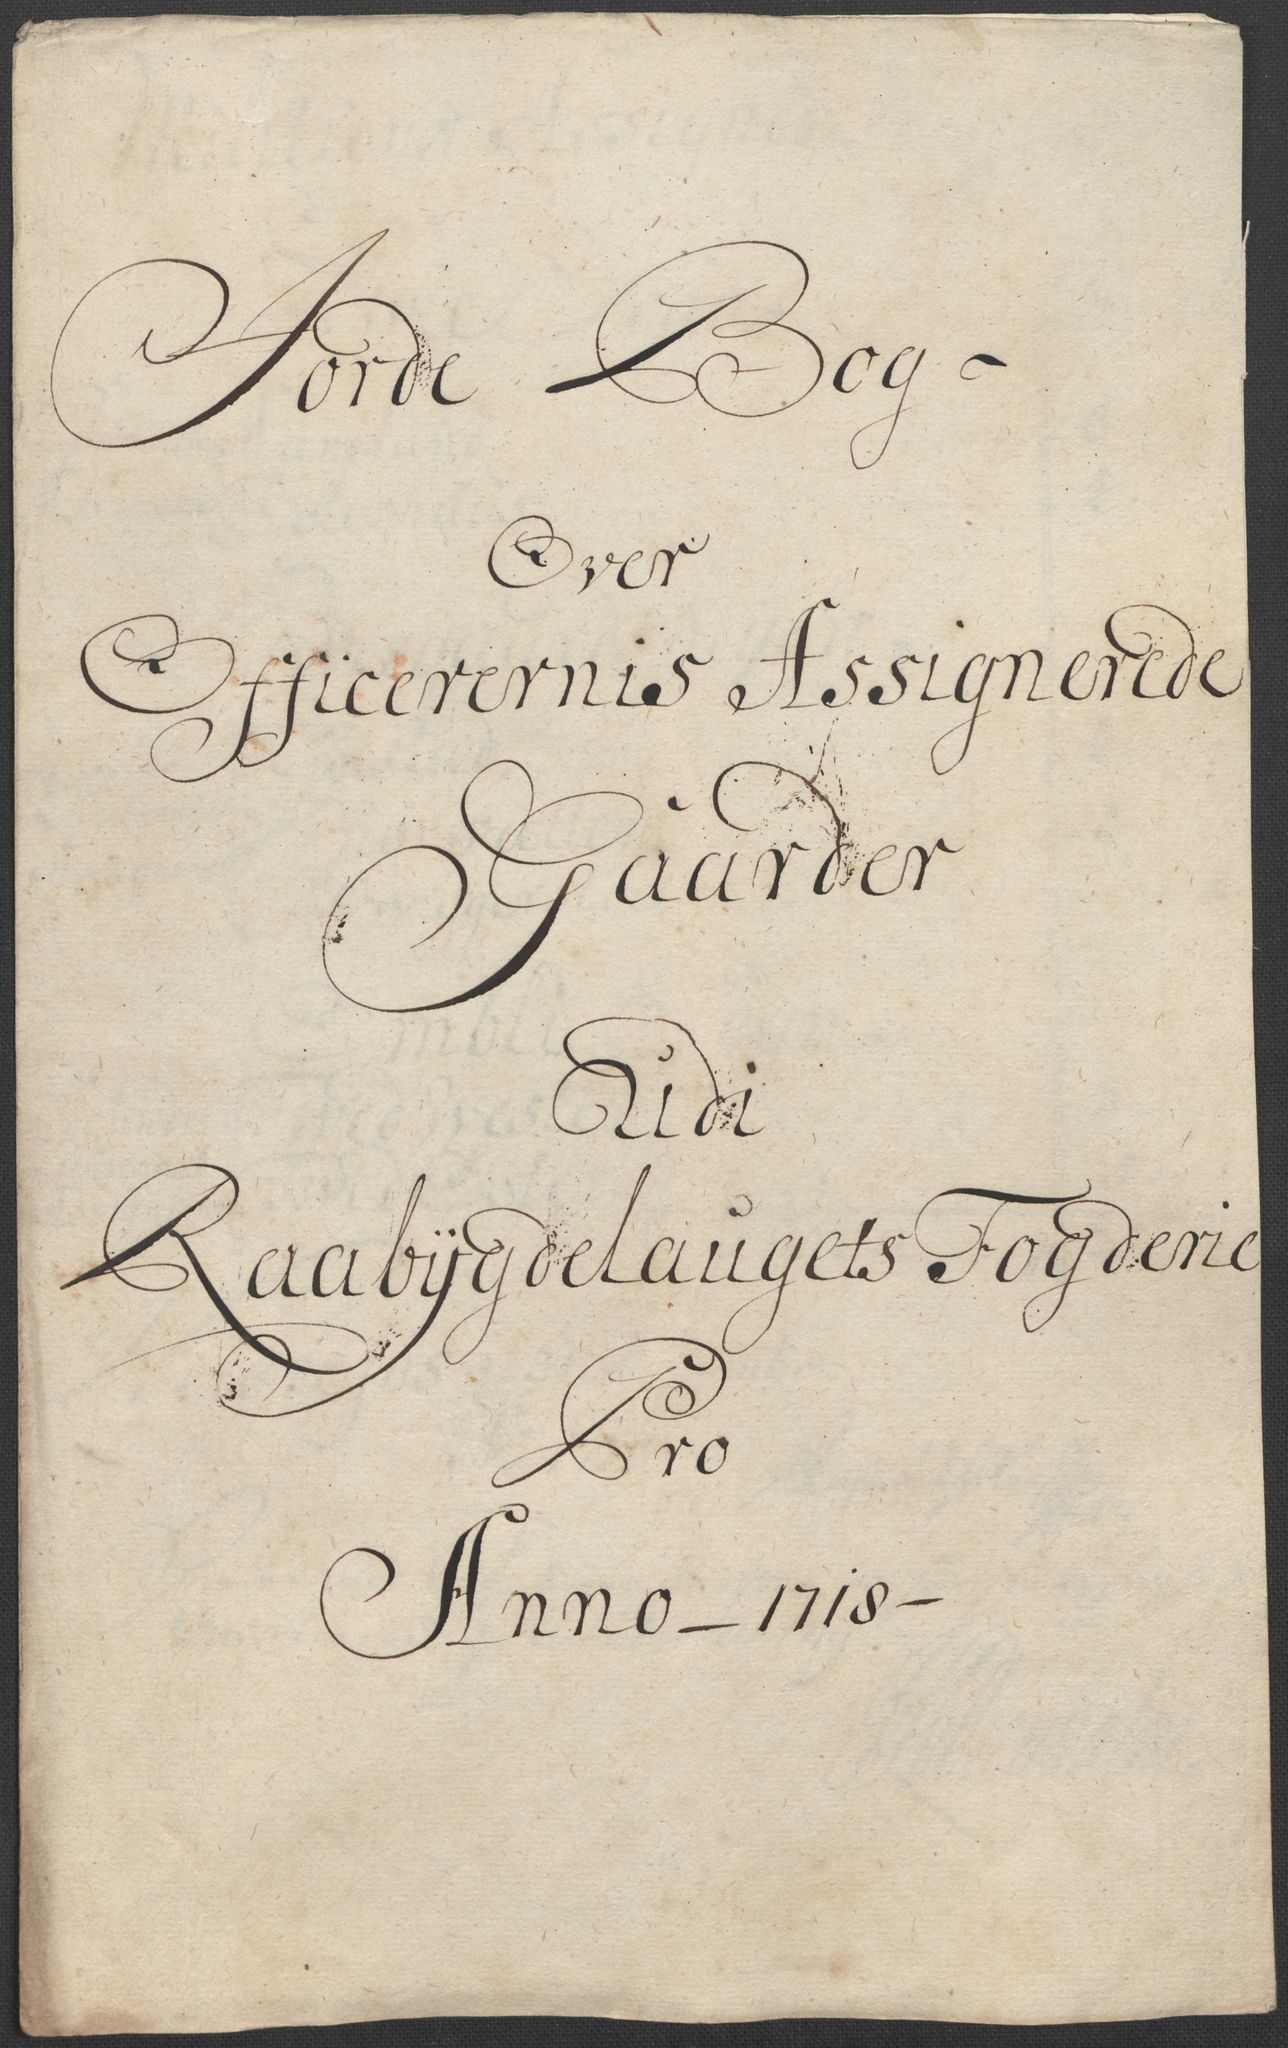 Jorde Bog -
Over
Officerernis Assignerede
Gaarder
Udi
Raabÿgdelaugets Fogderie
Pro
Anno - 1718 -